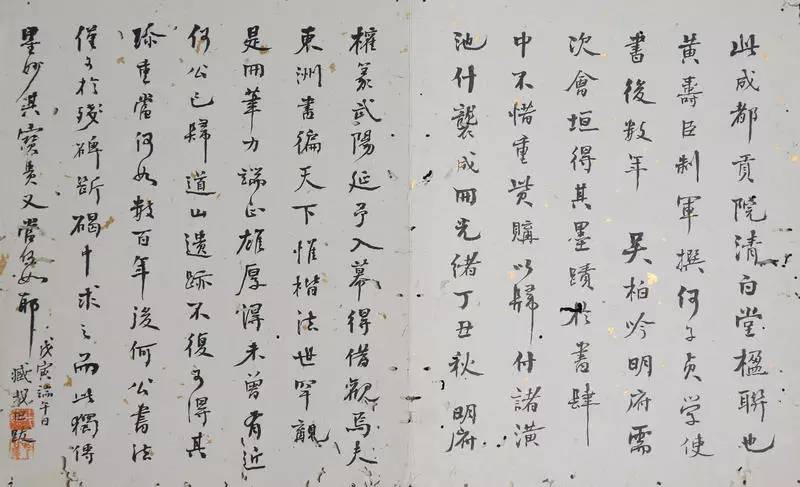 此成都貢院清白堂楹聯也
黃壽臣制軍撰何子貞学使
書後數年 吳柏吟明府需
次會垣得其墨蹟於書肆
中不惜重貲購以歸付諸潢
池什襲成冊光緒丁丑秋明府
權篆武陽延予入幕得借觀焉夫
東洲書徧天下惟楷法世罕覯
是冊筆力端正雄厚得未曾有近
何公已歸道山遺跡不復可得其
珍重當何如數百年後何公書法
僅可於殘碑斷碣中求之而此獨傳
墨妙其寶貴又當何如耶
戊寅端午日
跋